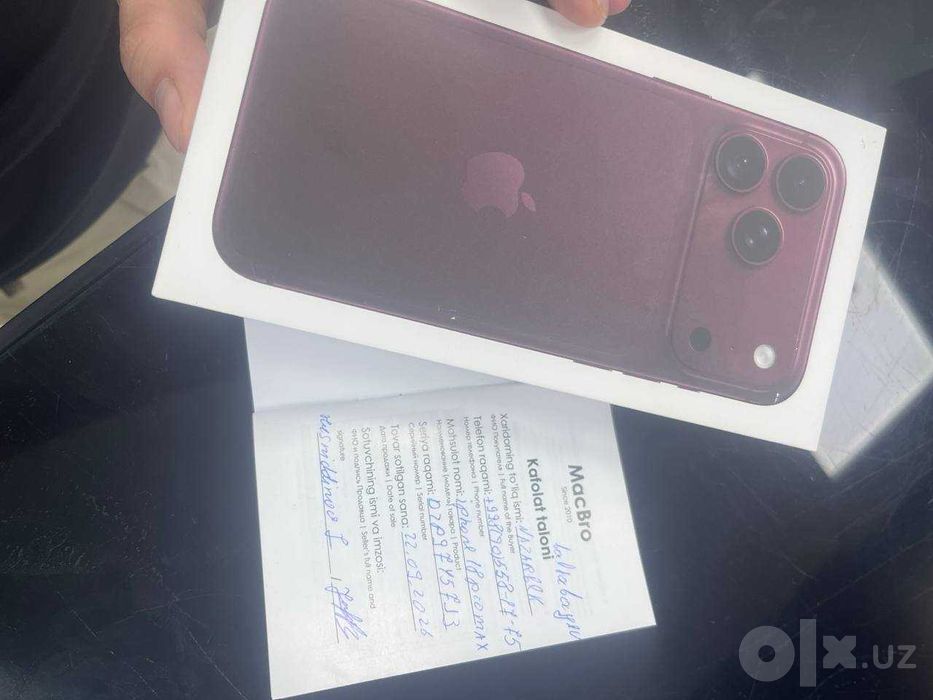 MacBro
Since 2010
Kafolat taloni
Xaridorning to'liq ismi:
ФИО покупателя | Full name of the Buyer
Telefon raqami:
Номер телефона | Phone number
Mahsulot nomi: iphone 18 promAX
Наименование (модель) товара | Product
Seriya raqami:
Серийный номер: | Serial number
Tovar sotilgan sana: 22.09.2026
Дата продажи | Date of sale
Sotuvchining ismi va imzosi:
ФИО и подпись Продавца | Seller's full name and
signature
olx.uz